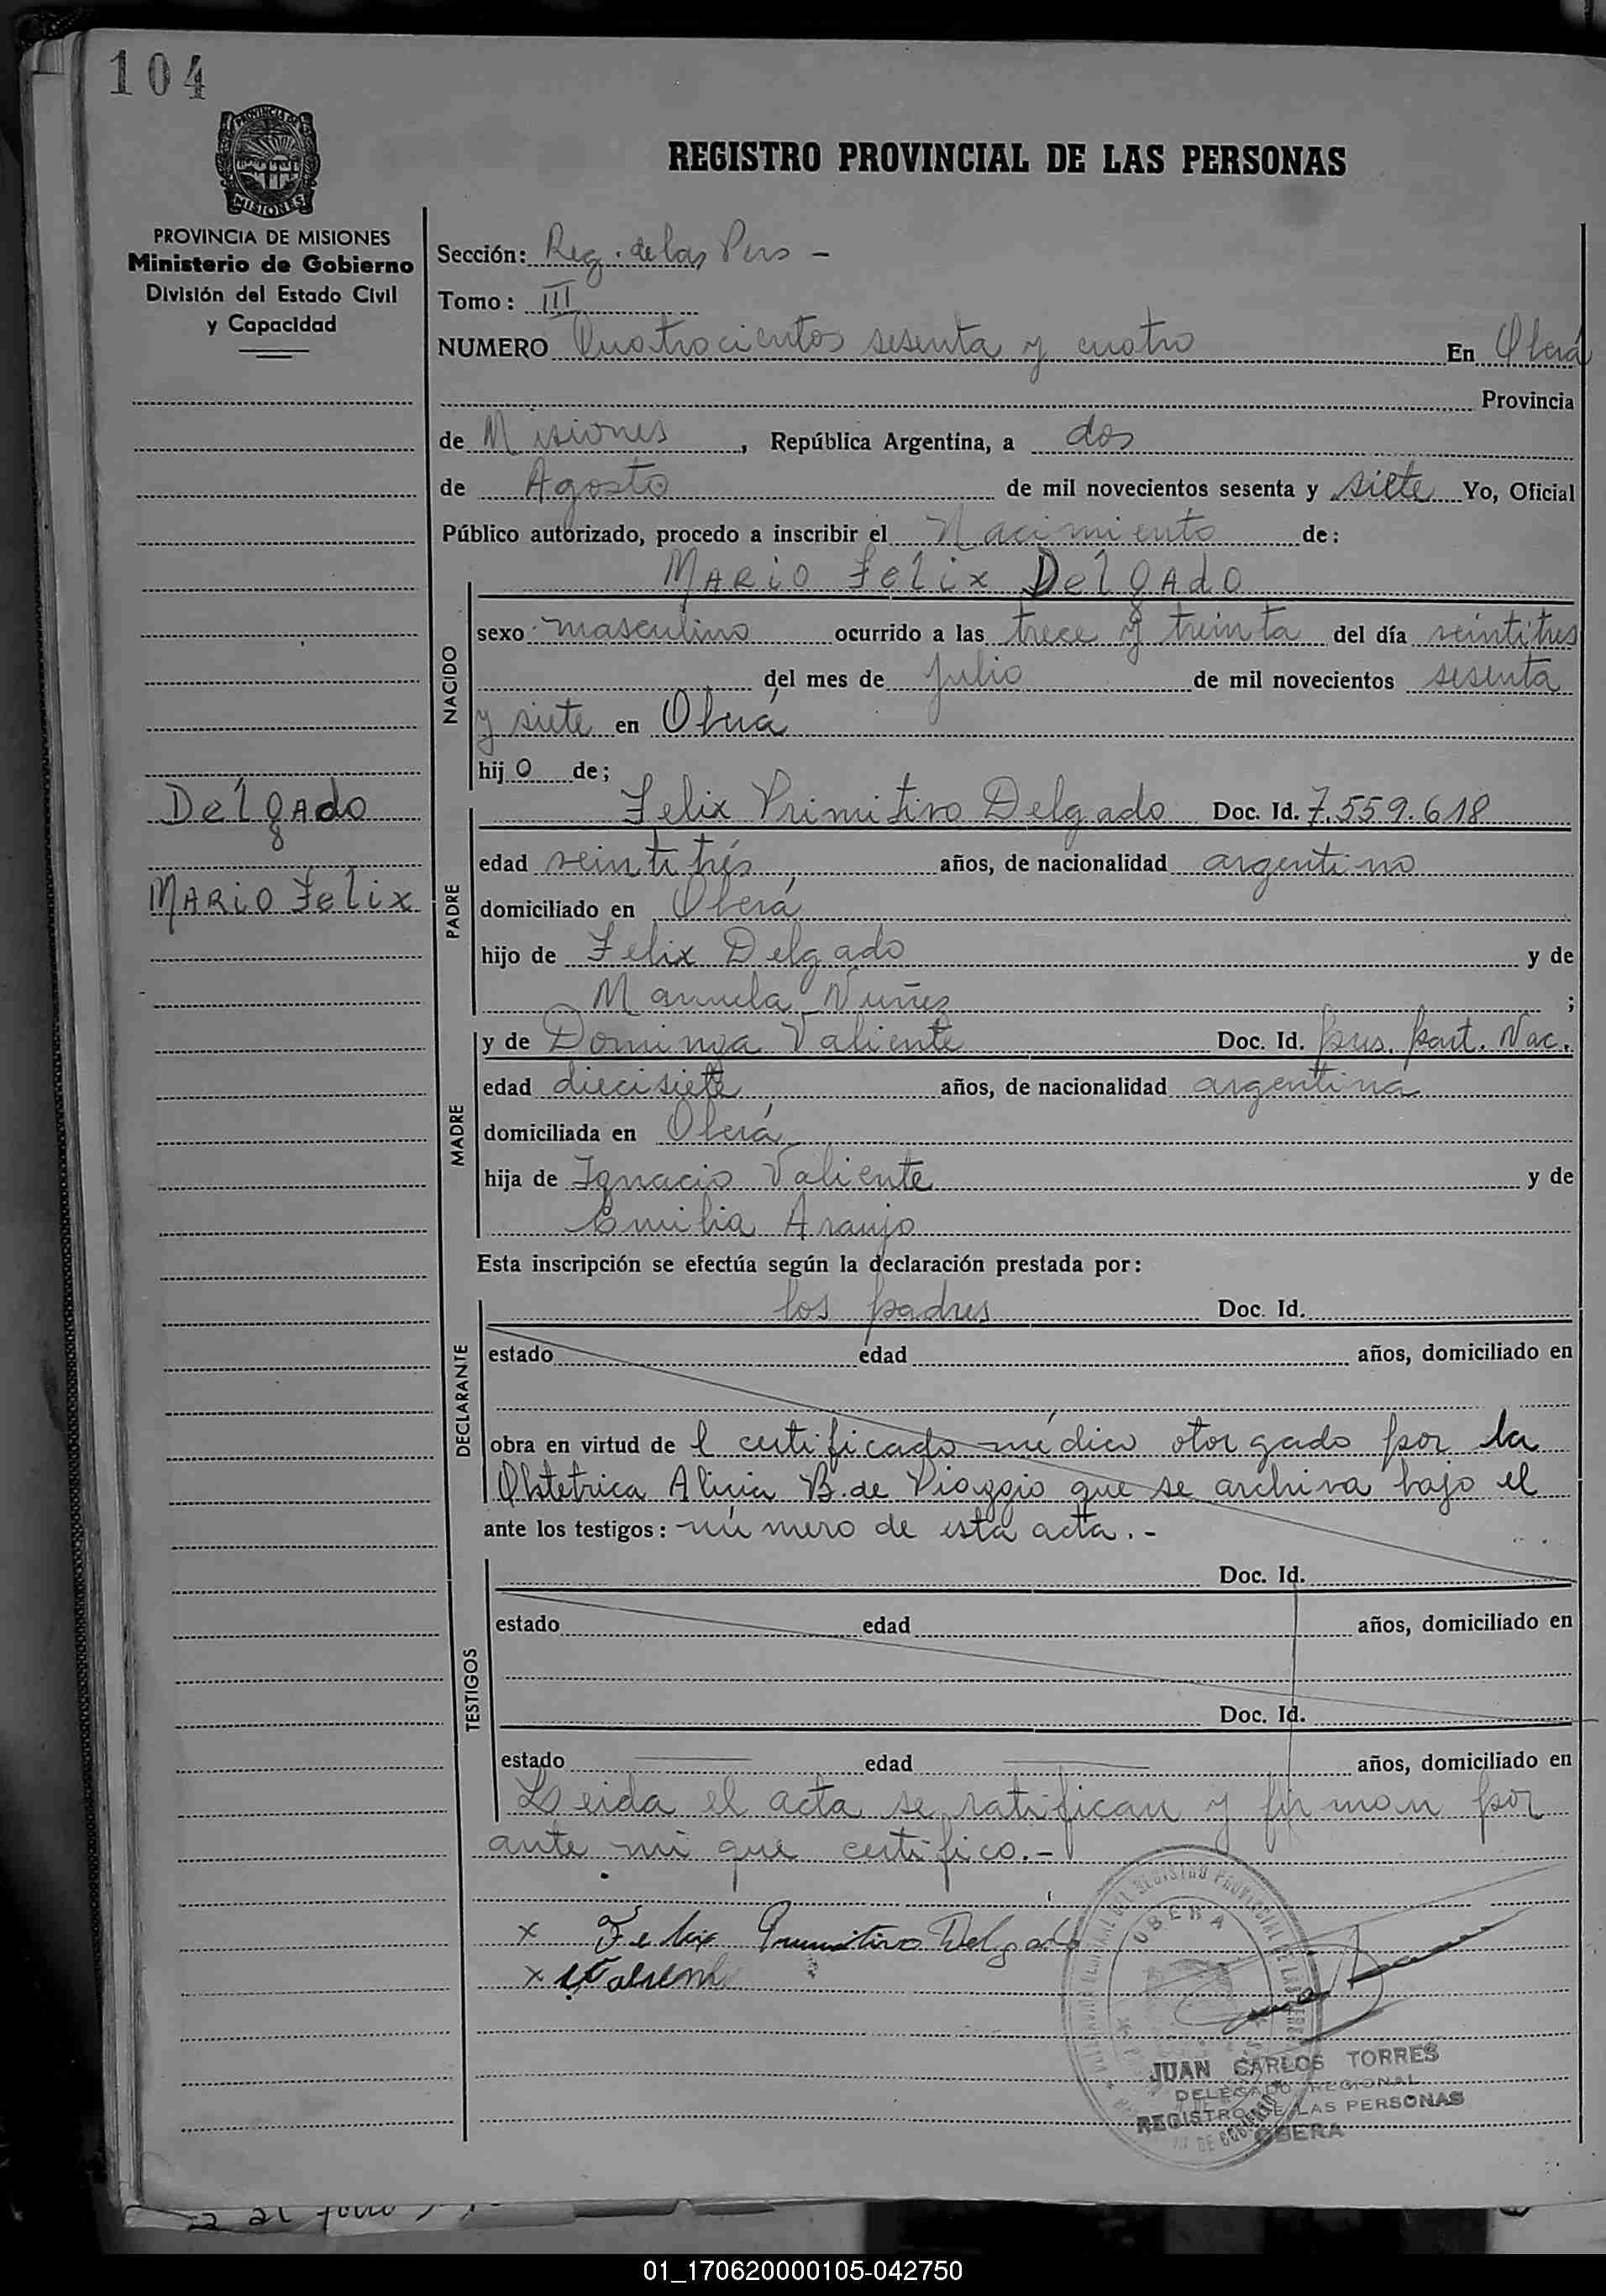 104
PROVINCIA DE
MISIONES
REGISTRO PROVINCIAL DE LAS PERSONAS
PROVINCIA DE MISIONES
Ministerio de Gobierno
División del Estado Civil
y Capacidad
Sección: Reg. de las Pers -
Tomo: III
NUMERO Cuatrocientos sesenta y cuatro En Oberá
Provincia
de Misiones, República Argentina, a dos
de Agosto de mil novecientos sesenta y siete Yo, Oficial
Público autorizado, procedo a inscribir el Nacimiento de:
MARIO Felix DelgAdo
NACIDO
sexo masculino ocurrido a las trece y treinta del día veintitres
del mes de Julio de mil novecientos sesenta
y siete en Oberá
hijo de;
Delgado
MARIO Felix
PADRE
Felix Primitivo Delgado Doc. Id. 7.559.618
edad veintitrés años, de nacionalidad argentino
domiciliado en Oberá
hijo de Felix Delgado y de
Manuela Nuñez ;
MADRE
y de Dominga Valiente Doc. Id. pres. part. Nac.
edad diecisiete años, de nacionalidad argentina
domiciliada en Oberá
hija de Ignacio Valiente y de
Emilia Araujo
Esta inscripción se efectúa según la declaración prestada por:
DECLARANTE
los padres Doc. Id.
estado edad años, domiciliado en
obra en virtud del certificado médico otorgado por la
Obstetrica Alicia B. de Piaggio que se archiva bajo el
ante los testigos: número de esta acta.-
TESTIGOS
Doc. Id.
estado edad años, domiciliado en
Doc. Id.
estado edad años, domiciliado en
Leida el acta se ratifican y firman por
ante mi que certifico.-
x Felix Primitivo Delgado
x
OBERA
JUAN CARLOS TORRES
DELEGADO REGIONAL
REGISTRO DE LAS PERSONAS
OBERA
01_170620000105-042750